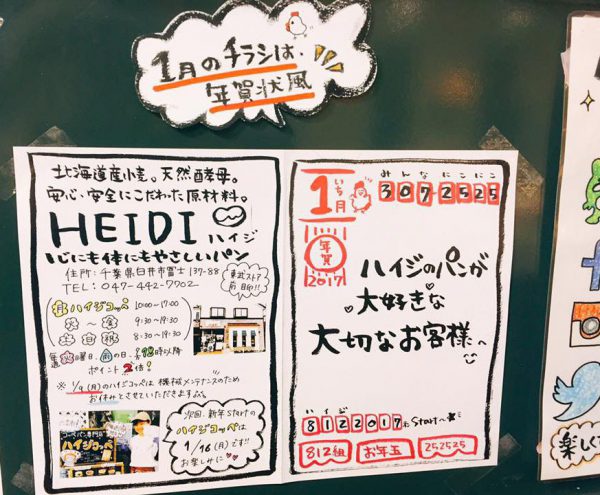 1月のチラシは、
年賀状風
北海道産小麦。天然酵母。
安心・安全にこだわった原材料。
HEIDI ハイジ
心にも体にもやさしいパン
住所:千葉県白井市冨士139-88
TEL:047-442-7702
東武ストア
前回り!!
月 ハイジコッペ 10:00~17:00
火~金 9:30~19:30
土日祝 8:30~19:30
毎週 曜日、雨の日、夕18時以降
ポイント2倍!
※1/9(月)のハイジコッペは機械メンテナンスのため
お休みとさせていただきます。
コッペパン専門店
ハイジコッペ
次回、新年Startの
ハイジコッペは
1/16(月)です!!
お楽しみに
1月
いちがつ
みんなにこにこ
307-2525
年賀
2017
ハイジのパンが
大好きな
大切なお客様へ
ハイジ
8122017 start~
812組 お年玉 252525
楽し